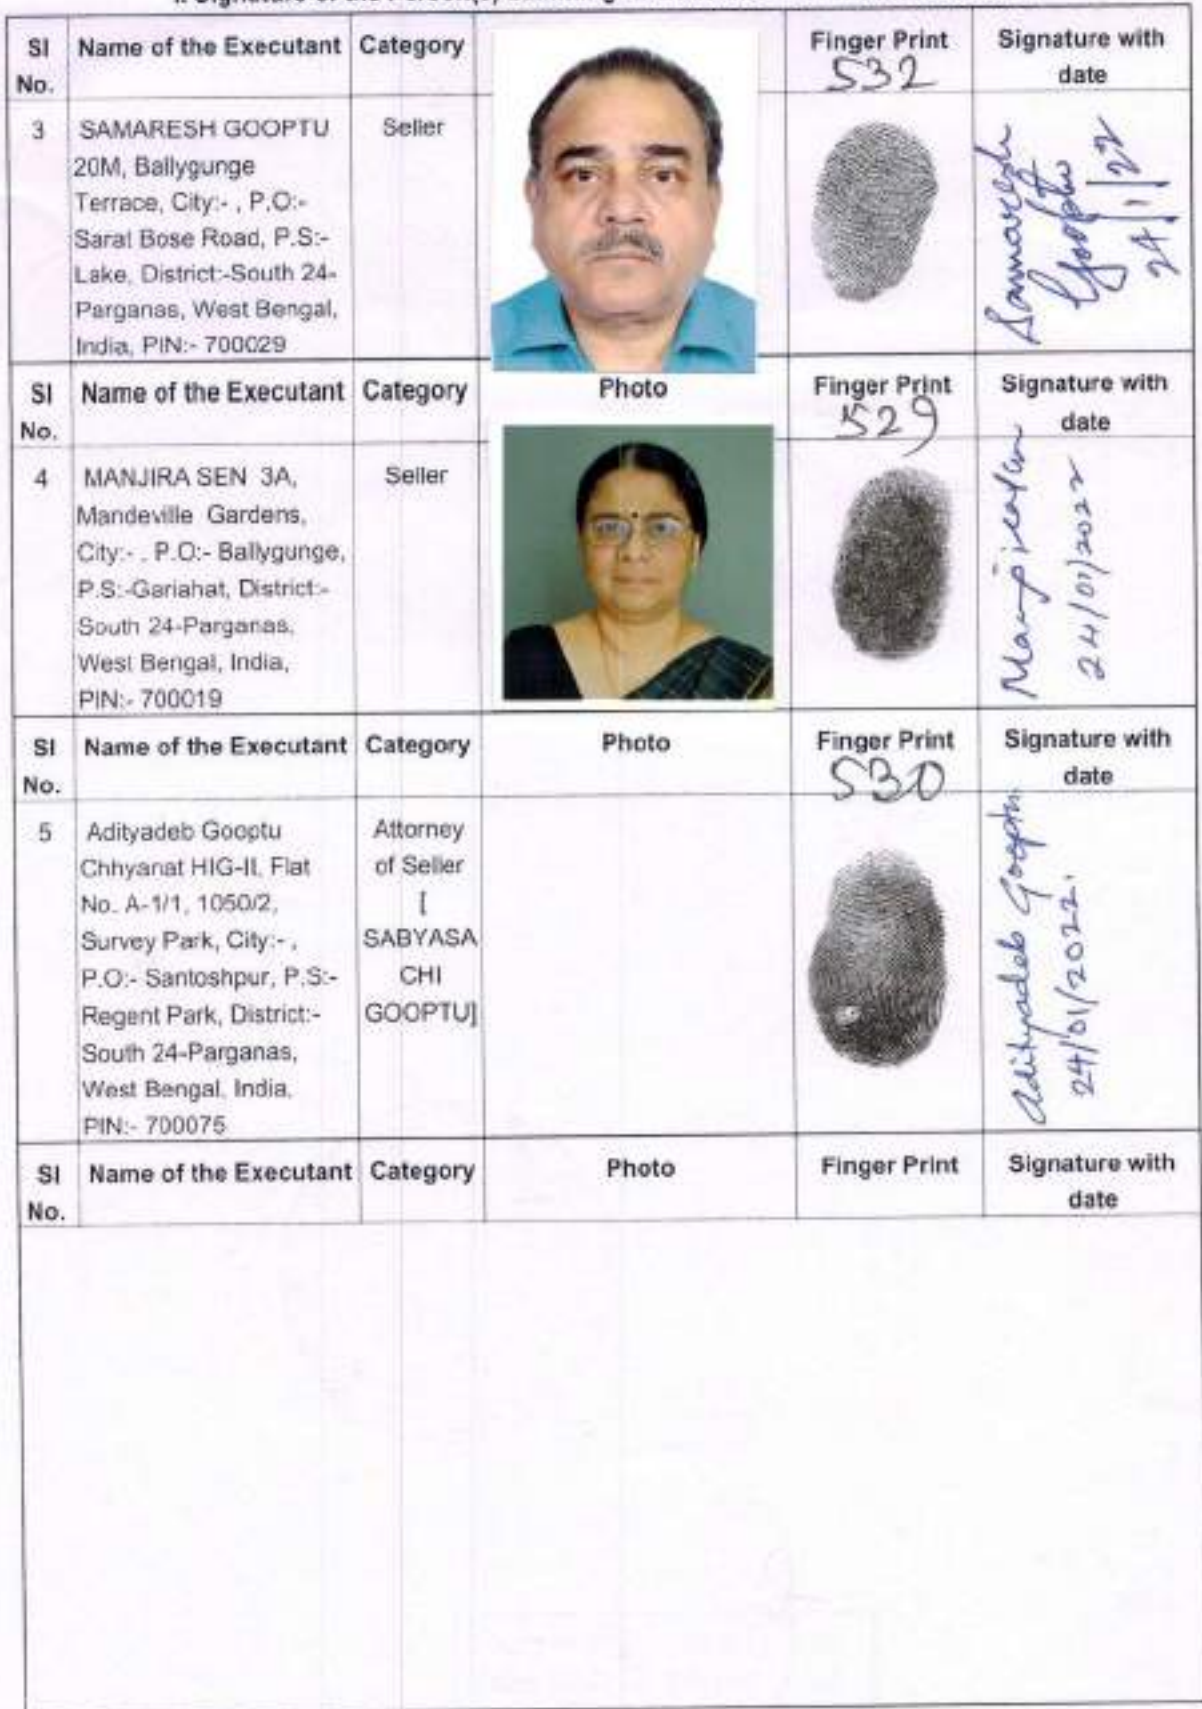 Sl No. Name of the Executant Category Finger Print Signature with date
532
3 SAMARESH GOOPTU Seller
20M, Ballygunge
Terrace, City:- , P.O:-
Sarat Bose Road, P.S:-
Lake, District:-South 24-
Parganas, West Bengal,
India, PIN:- 700029
Samaresh
Gooptu
24/1/22
Sl No. Name of the Executant Category Photo Finger Print Signature with date
529
4 MANJIRA SEN 3A, Seller
Mandeville Gardens,
City:- , P.O:- Ballygunge,
P.S:-Gariahat, District:-
South 24-Parganas,
West Bengal, India,
PIN:- 700019
24/01/2022
Sl No. Name of the Executant Category Photo Finger Print Signature with date
530
5 Adityadeb Gooptu
Chhyanat HIG-II, Flat
No. A-1/1, 1050/2,
Survey Park, City:- ,
P.O:- Santoshpur, P.S:-
Regent Park, District:-
South 24-Parganas,
West Bengal, India,
PIN:- 700075
Attorney
of Seller
[
SABYASA
CHI
GOOPTU]
Adityadeb Gooptu.
24/01/2022.
Sl No. Name of the Executant Category Photo Finger Print Signature with date